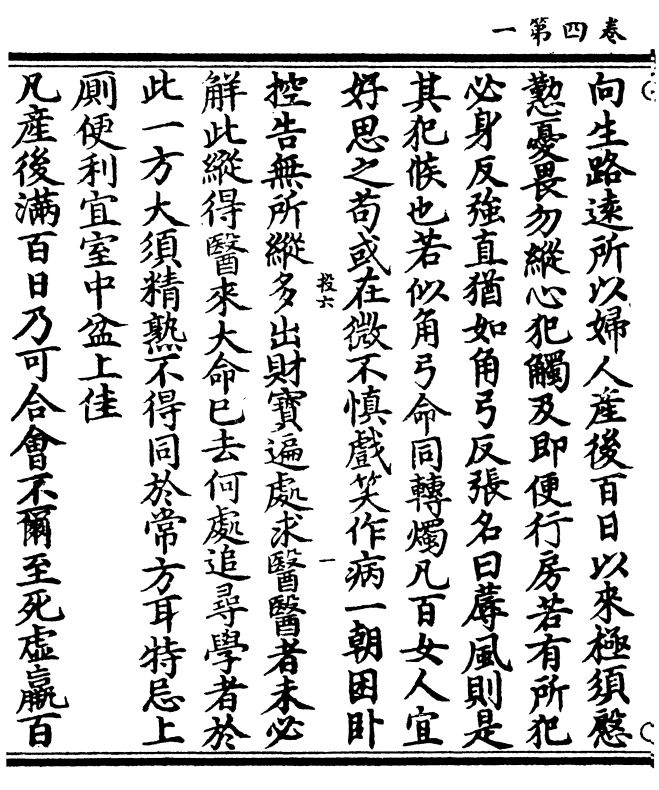 卷四第一
向生路遠所以婦人產後百日以來極須慇
懃憂畏勿縱心犯觸及即便行房若有所犯
必身反強直猶如角弓反張名曰蓐風則是
其犯候也若似角弓命同轉燭凡百女人宜
好思之苟或在微不慎戲笑作病一朝困卧
投六
一
控告無所縱多出財寶遍處求醫醫者未必
解此縱得醫來大命已去何處追尋學者於
此一方大須精熟不得同於常方耳特忌上
厠便利宜室中盆上佳
凡產後滿百日乃可合會不爾至死虛羸百